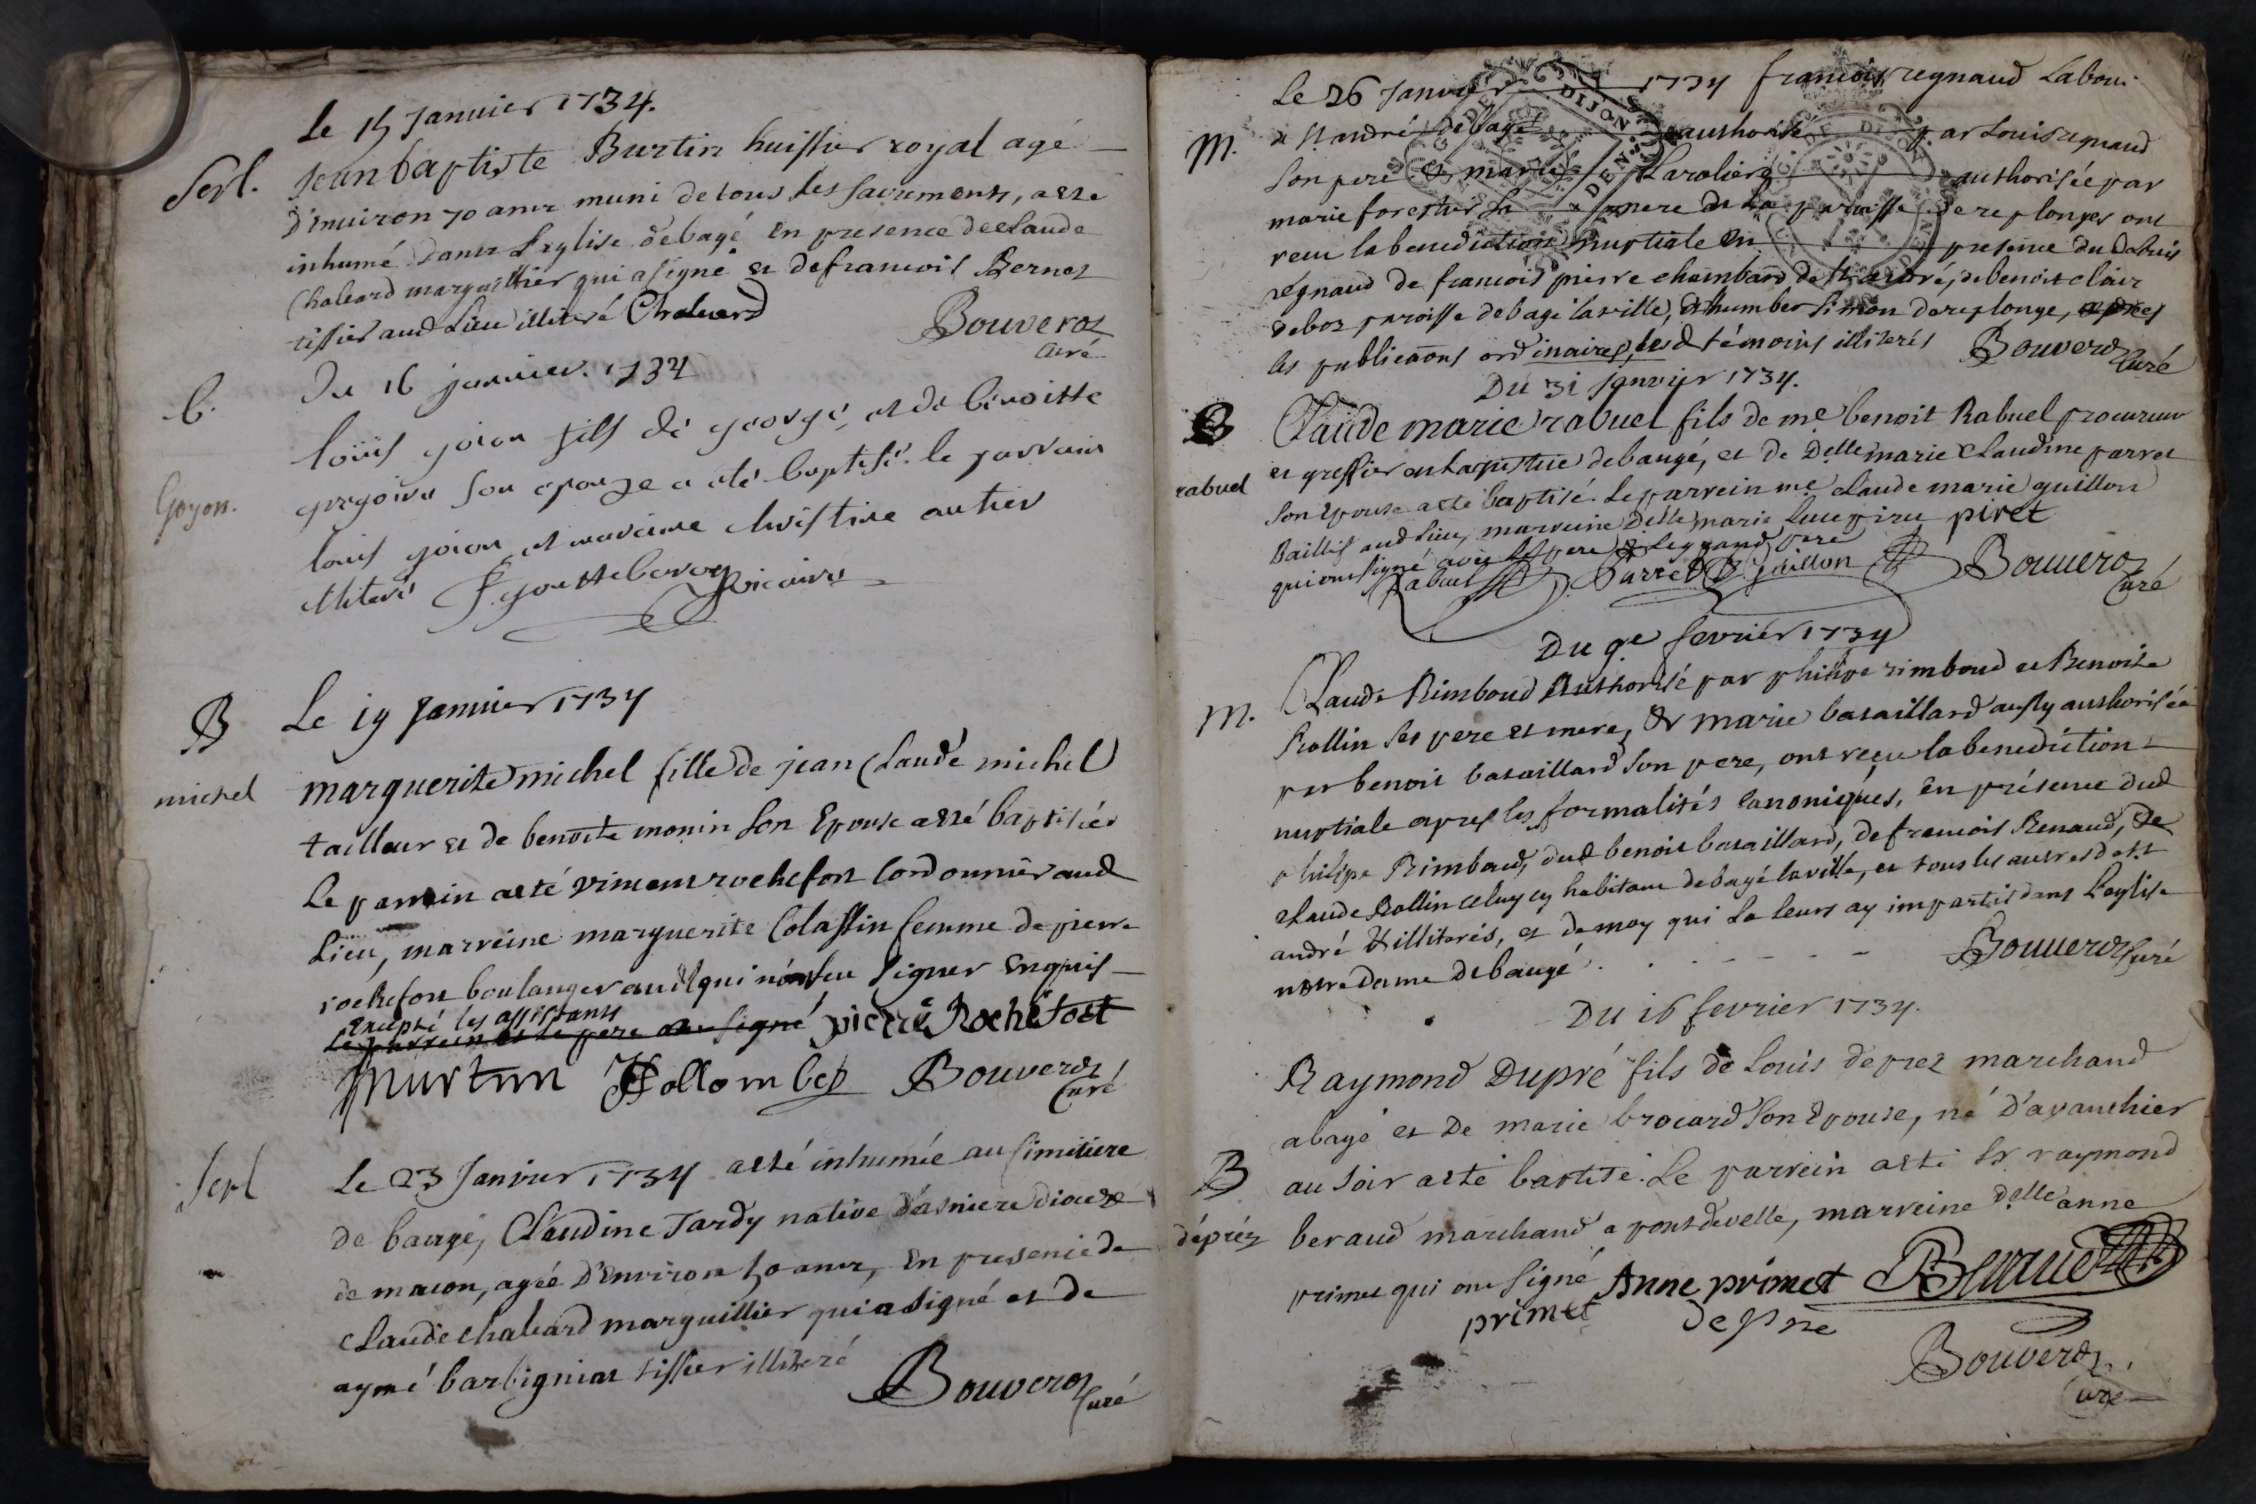 Le 15 Janvier 1734.
Sepl. Jean baptiste Burtin huissier royal agé
D'environ 70 ans muni de tous les sacrements, a esté
inhumé dans L'eglise de bagé en presence de Claude
Chaleard marguillier qui a signé et de francois Bernet
tissier aud Lieu illiteré Chaleard
Bouverot
curé
b. Du 16 janvier 1734
loüis goion fils de george, et de benoitte
Goyon. gregoire son epouze a eté baptisé. le parrain
louis goion et maraine christine autier
illiterés F. gouttebaron vicaire
B Le 19 Janvier 1734
michel marguerite michel fille de jean Claude michel
tailleur et de benoite monin son Epouse a esté baptisée
Le parrein a esté vincent rochefort Cordonnier aud
Lieu, marreine marguerite Colassin femme de pierre
rochefort boulanger aud qui n'ont sceu signer Enquis
Excepté les assistants
Le parrein et le pere ont signé pierre Rochefort
Murtin Hollombep Bouverot
Curé
Sepl Le 23 Janvier 1734 a esté inhumée au simitiere
de baugé, Claudine Tardy native d'asniere dioceze
de macon, agée D'environ 50 ans, En presence de
Claude chaleard marguillier qui a signé et de
aymé barbignias tissier illiteré
Bouverot
Curé
Le 26 Janvier 1734 francois regnaud Labou.
M. a St andré de bagé authorisé par Louis regnaud
son pere et marie Larolier authorisée par
marie forestier sa mere de la paroisse de replonges ont
recu la benediction nuptiale en presence du d Louis
regnaud de francois pierre chambard de St andré, de benoit clair
debos paroisse de bagé la ville, et humber simon de replonge, apres
les publications ordinaires, lesd témoins illiterés Bouverot
Curé
Du 31 Janvier 1734.
B Claude marie rabuel fils de me benoit Rabuel procureur
rabuel et greffier en la justice de baugé, et de Delle marie Claudine parret
son epouse a esté baptisé. Le parrein me claude marie guillon
Baillif aud Lieu, marreine Delle marie Luce piret piret
qui ont signé avec le pere et le grand pere
Rabuel Parret Guillon Bouverot
Curé
Du 9e fevrier 1734
M. Claude Rimboud Authorisé par philipe rimboud et Benoite
Rollin ses pere et mere, et marie bataillard aussy authorisée
par benoit bataillard son pere, ont reçu la benediction
nuptiale apres les formalités canoniques, En présence dud
philipe Rimbaud, dud benoit bataillard, de francois Renaud, de
claude Rollin celuy cy habitant de bagé la ville, et tous les autres de St
andré et illiterés, et de moy qui La leurs ay impartis dans L'eglise
notre dame de baugé Bouverot Curé
Du 16 fevrier 1734.
Raymond Dupré fils de Louis deprez marchand
a bagé et De marie brocard son Epouse, né d'avanthier
B au soir a esté baptisé. Le parrein a esté Sr raymond
dépréz beraud marchand a pontdevelle, marreine Delle anne
primet qui ont signé Anne primet Beraud
primet depre
Bouverot
Curé
DIJON